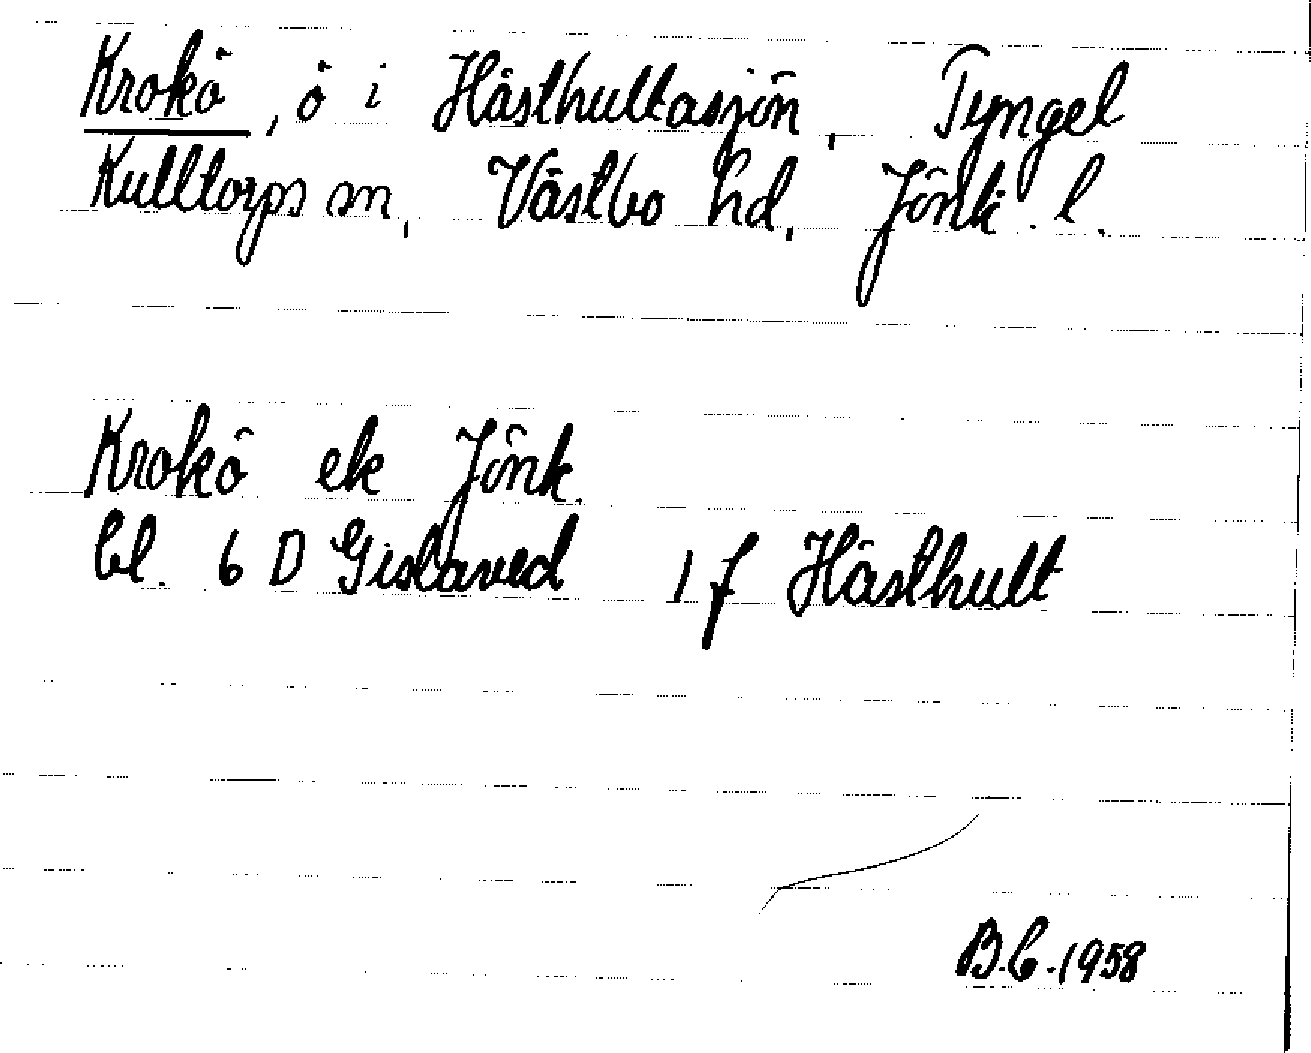 Krokö, ö i Hästhultasjön, Tyngel
Kulltorps sn, Västbo hd, Jönk. l.
Krokö ek Jönk.
bl. 6 D Gislaved 1 f Hästhult
B.C. 1958